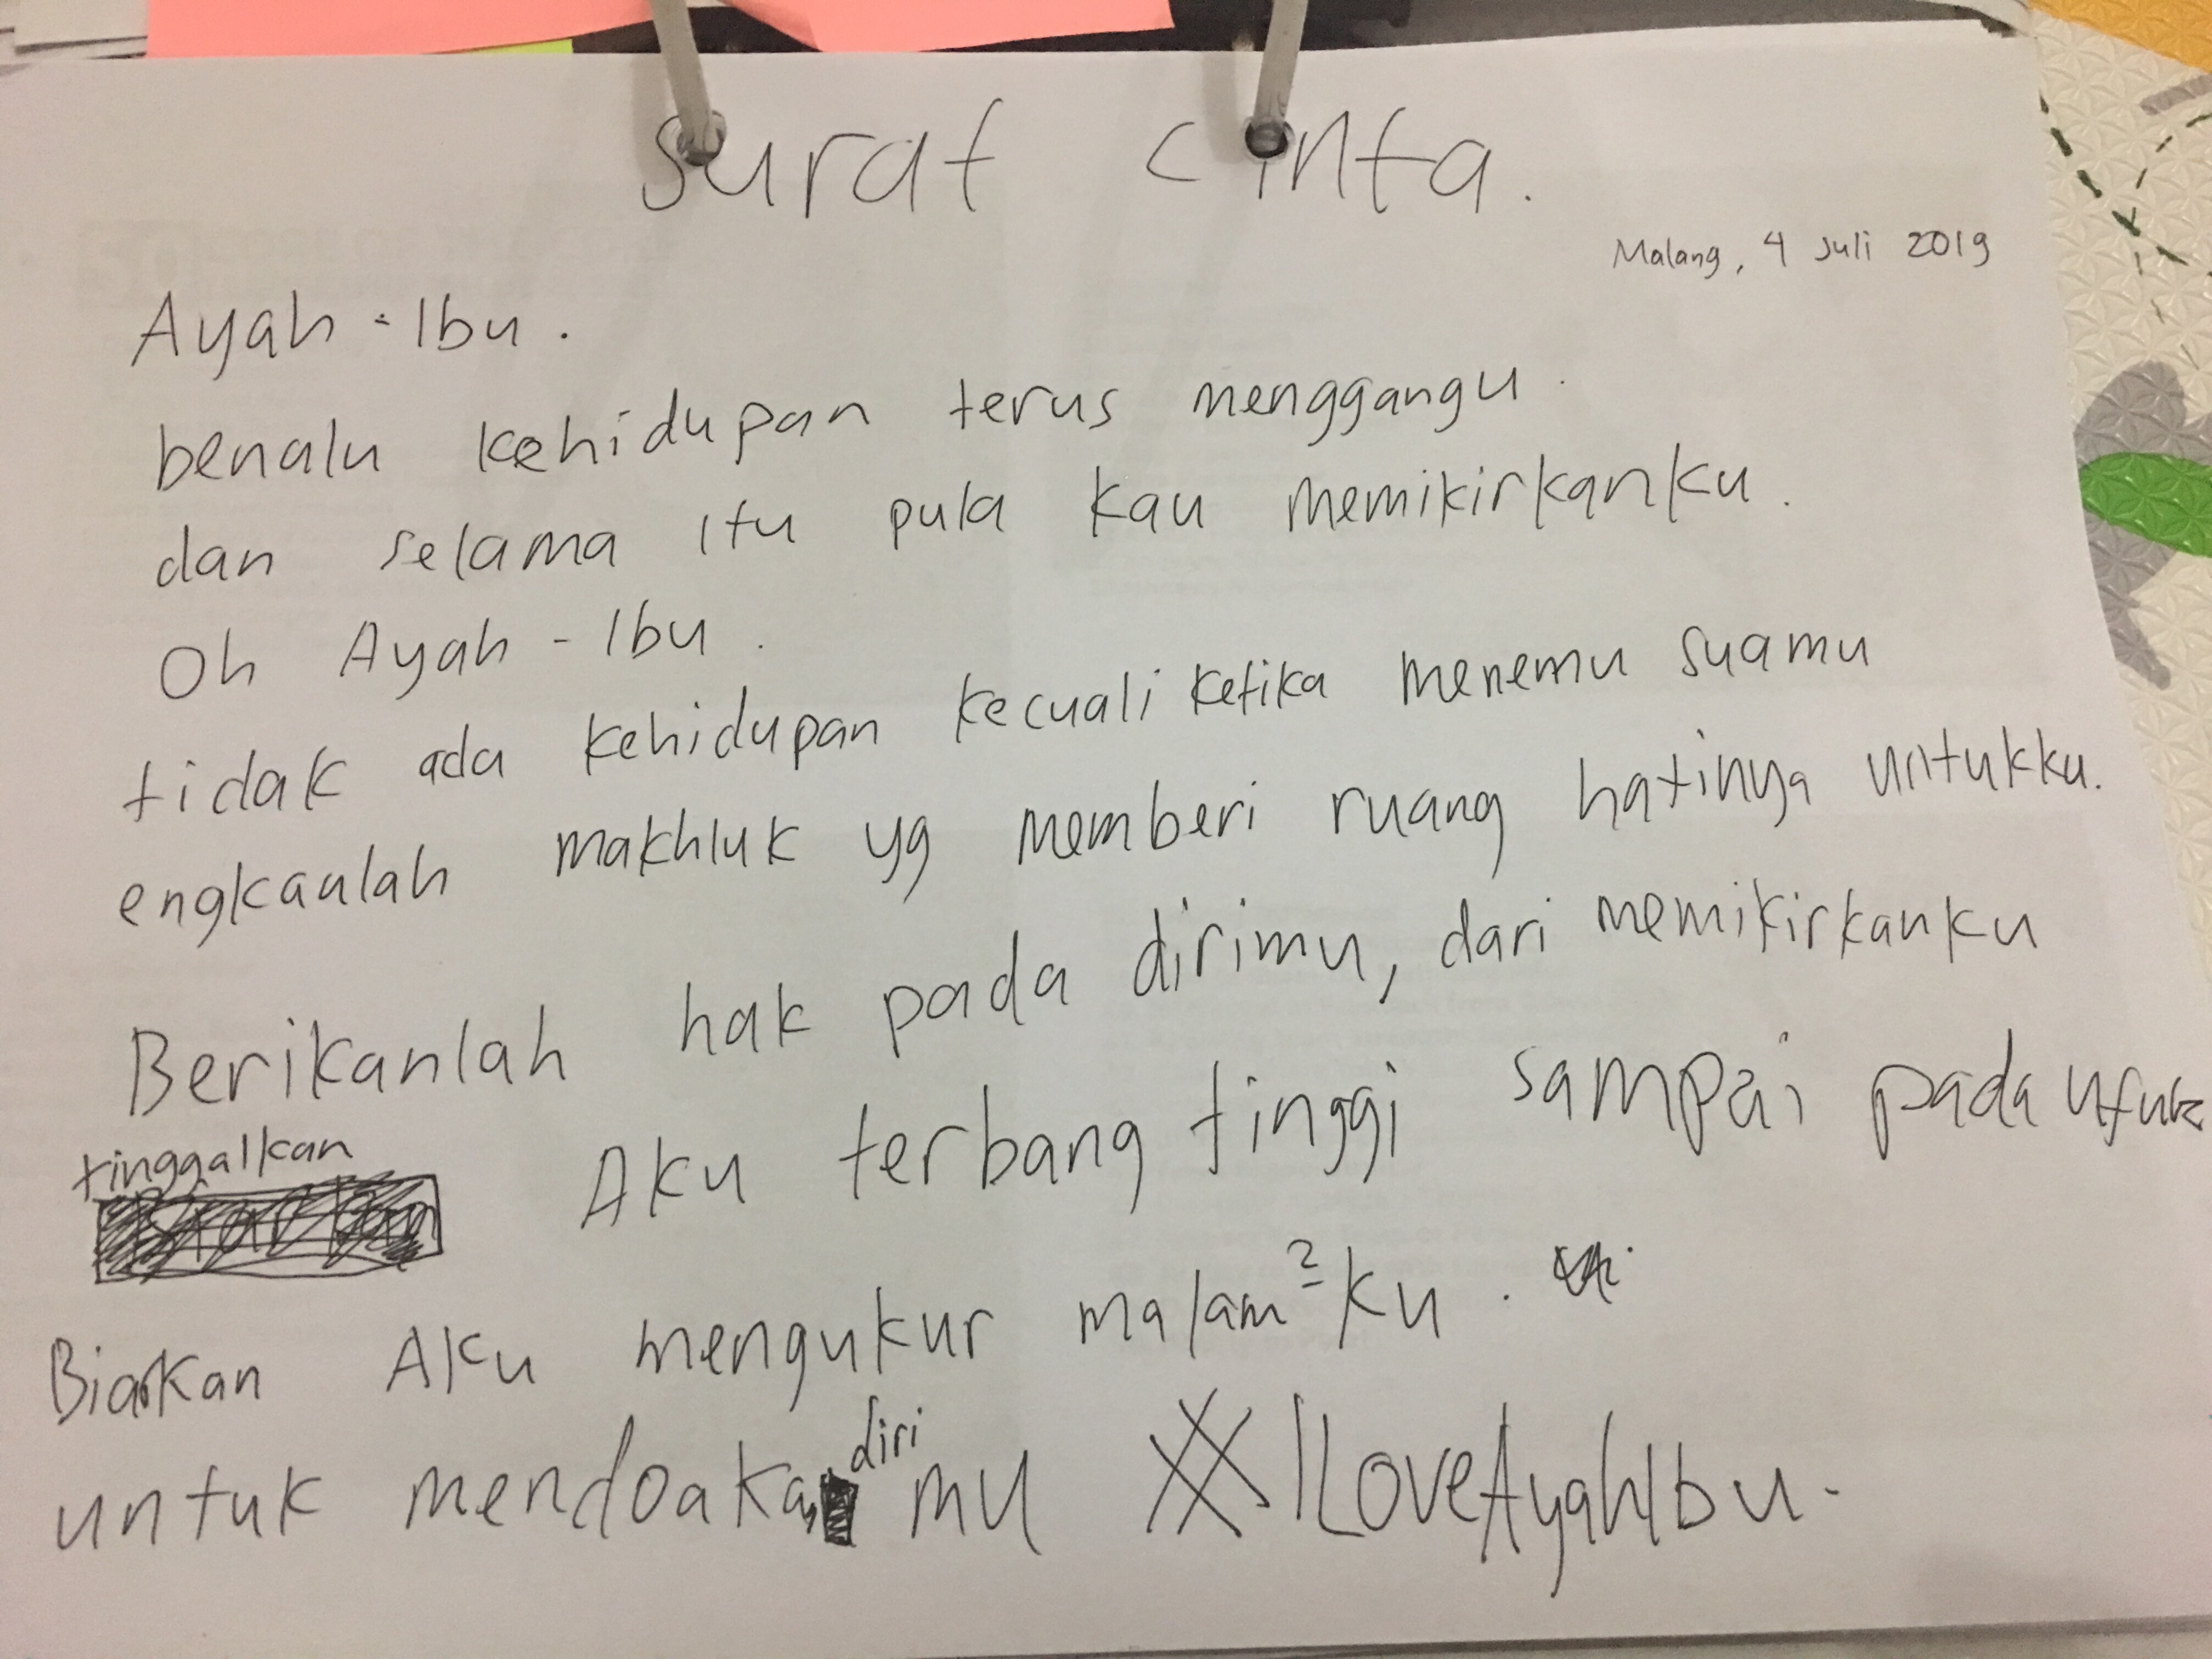 surat cinta.
Malang, 4 Juli 2019
Ayah - Ibu.
benalu kehidupan terus menggangu.
dan selama itu pula kau memikirkanku.
Oh Ayah - Ibu.
tidak ada kehidupan kecuali ketika menemu suamu
engkaulah makhluk yg memberi ruang hatinya untukku.
Berikanlah hak pada dirimu, dari memikirkanku
tinggalkan Aku terbang tinggi sampai pada ufuk
Biarkan Aku mengukur malam²ku.
untuk mendoakan dirimu #ILoveAyahIbu.